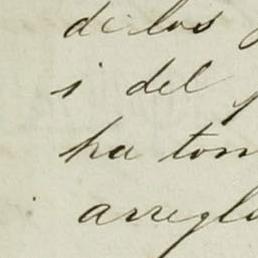 de los
i del
ha tom
arregl